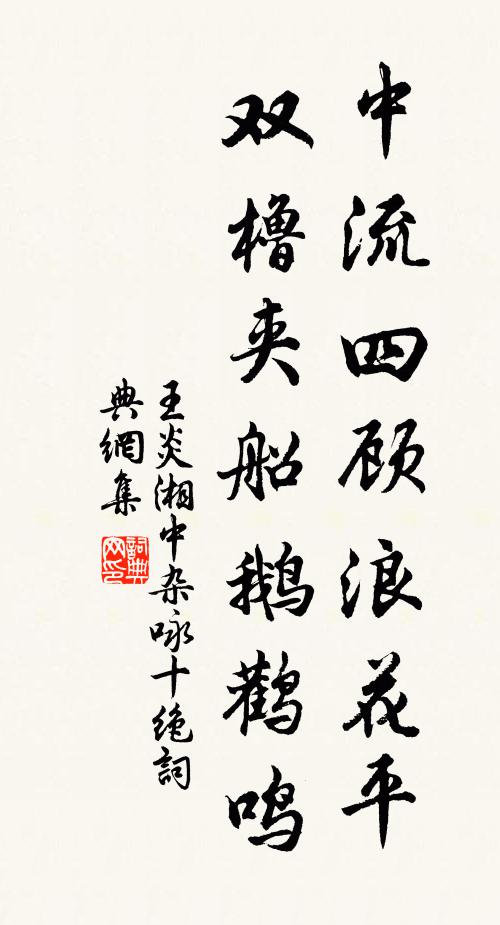 中流四顾浪花平
双橹夹船鹅鹳鸣
王炎湘中杂咏十绝詞
典網集
詞典网印